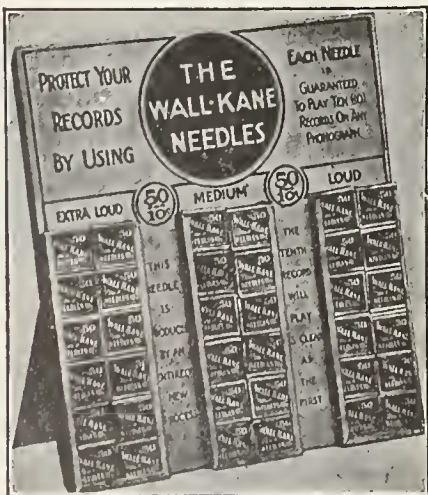 PROTECT YOUR
RECORDS
BY USING
THE
WALL-KANE
NEEDLES
EACH NEEDLE
IS
GUARANTEED
TO PLAY TEN (10)
RECORDS ON ANY
PHONOGRAPH
EXTRA LOUD
50
10¢
MEDIUM
50
10¢
LOUD
THIS
NEEDLE
IS
PRODUCED
BY AN
ENTIRELY
NEW
PROCESS
THE
TENTH
RECORD
WILL
PLAY
AS CLEAR
AS
THE
FIRST
50
WALL KANE
NEEDLES